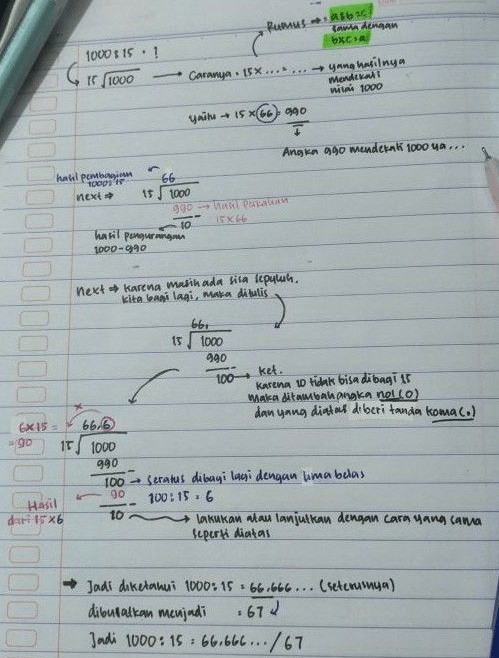 Rumus → = a:b=c
sama dengan
bxc=a
1000:15 = ?
15√1000 → Caranya = 15x...=... → yang hasilnya
mendekati
nilai 1000
yaitu → 15x66=990
Angka 990 mendekati 1000 ya...
hasil pembagian
1000:15
66
next ⇒ 15√1000
990 → hasil perkalian
15x66
10
hasil pengurangan
1000-990
next ⇒ karena masih ada sisa sepuluh,
kita bagi lagi, maka ditulis
66,
15√1000
990
100 → ket.
karena 10 tidak bisa dibagi 15
maka ditambah angka nol (0)
dan yang diatas diberi tanda koma (,)
x
6x15 =
=90
66,6
15√1000
990
100 → seratus dibagi lagi dengan lima belas
90
100:15 = 6
Hasil
dari 15x6
10 → lakukan atau lanjutkan dengan cara yang sama
seperti diatas
→ Jadi diketahui 1000:15 = 66,666... (seterusnya)
dibulatkan menjadi = 67
Jadi 1000:15 = 66,666.../67